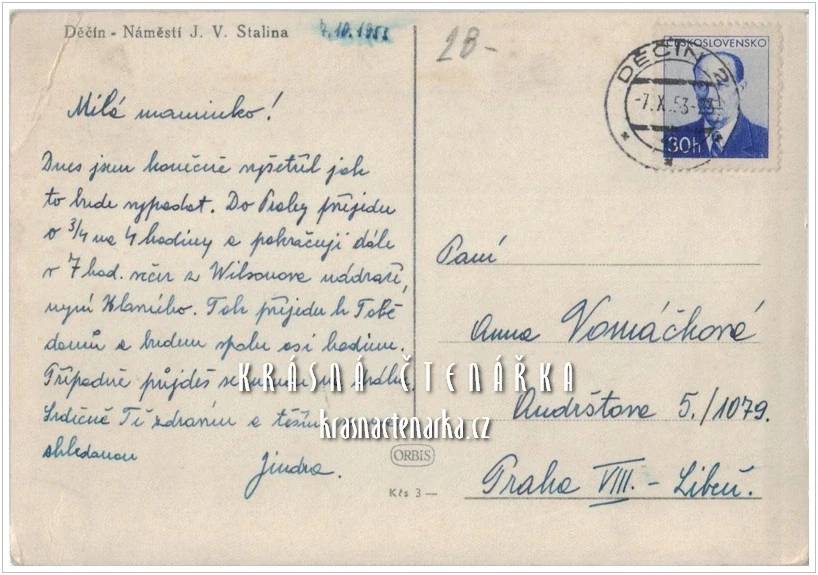 Děčín - Náměstí J. V. Stalina
7.10.1953
28-
ČESKOSLOVENSKO
DĚČÍN 2
-7.X.53-
30h
Milá maminko!
Dnes jsem konečně vyšetřil jak
to bude vypadat. Do Prahy přijedu
o 3/4 na 4 hodiny a pokračuji dále
v 7 hod. večer z Wilsonova nádraží,
nyní Hlavního. Tak přijedu k Tobě
domů a budem spolu asi hodinu.
Případně půjdeš se mnou na
Srdečně Tě zdravím a těším se na
shledanou
Jindra.
Paní
Anna Vomáčková
5./1079.
Praha VIII. - Libeň.
KRÁSNÁ ČTENÁŘKA
krasnactenarka.cz
ORBIS
Kčs 3 —